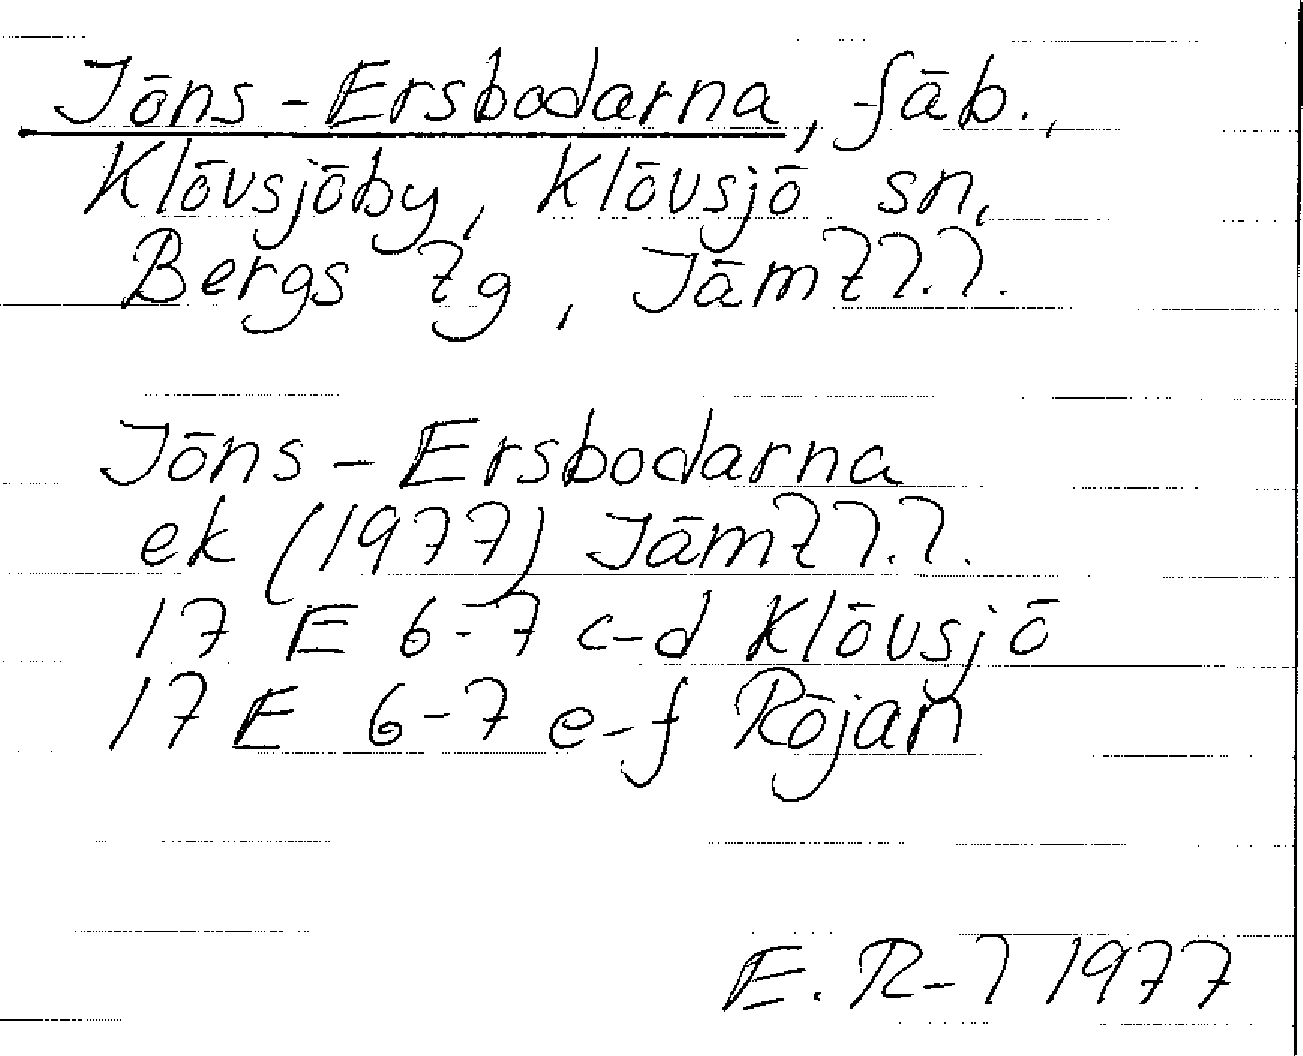 Jöns-Ersbodarna, fäb.,
Klövsjöby, Klövsjö sn,
Bergs tg, Jämtl.l.
Jöns-Ersbodarna
ek (1977) Jämtl.l.
17 E 6-7 c-d Klövsjö
17 E 6-7 e-f Röjan
E. R-l 1977